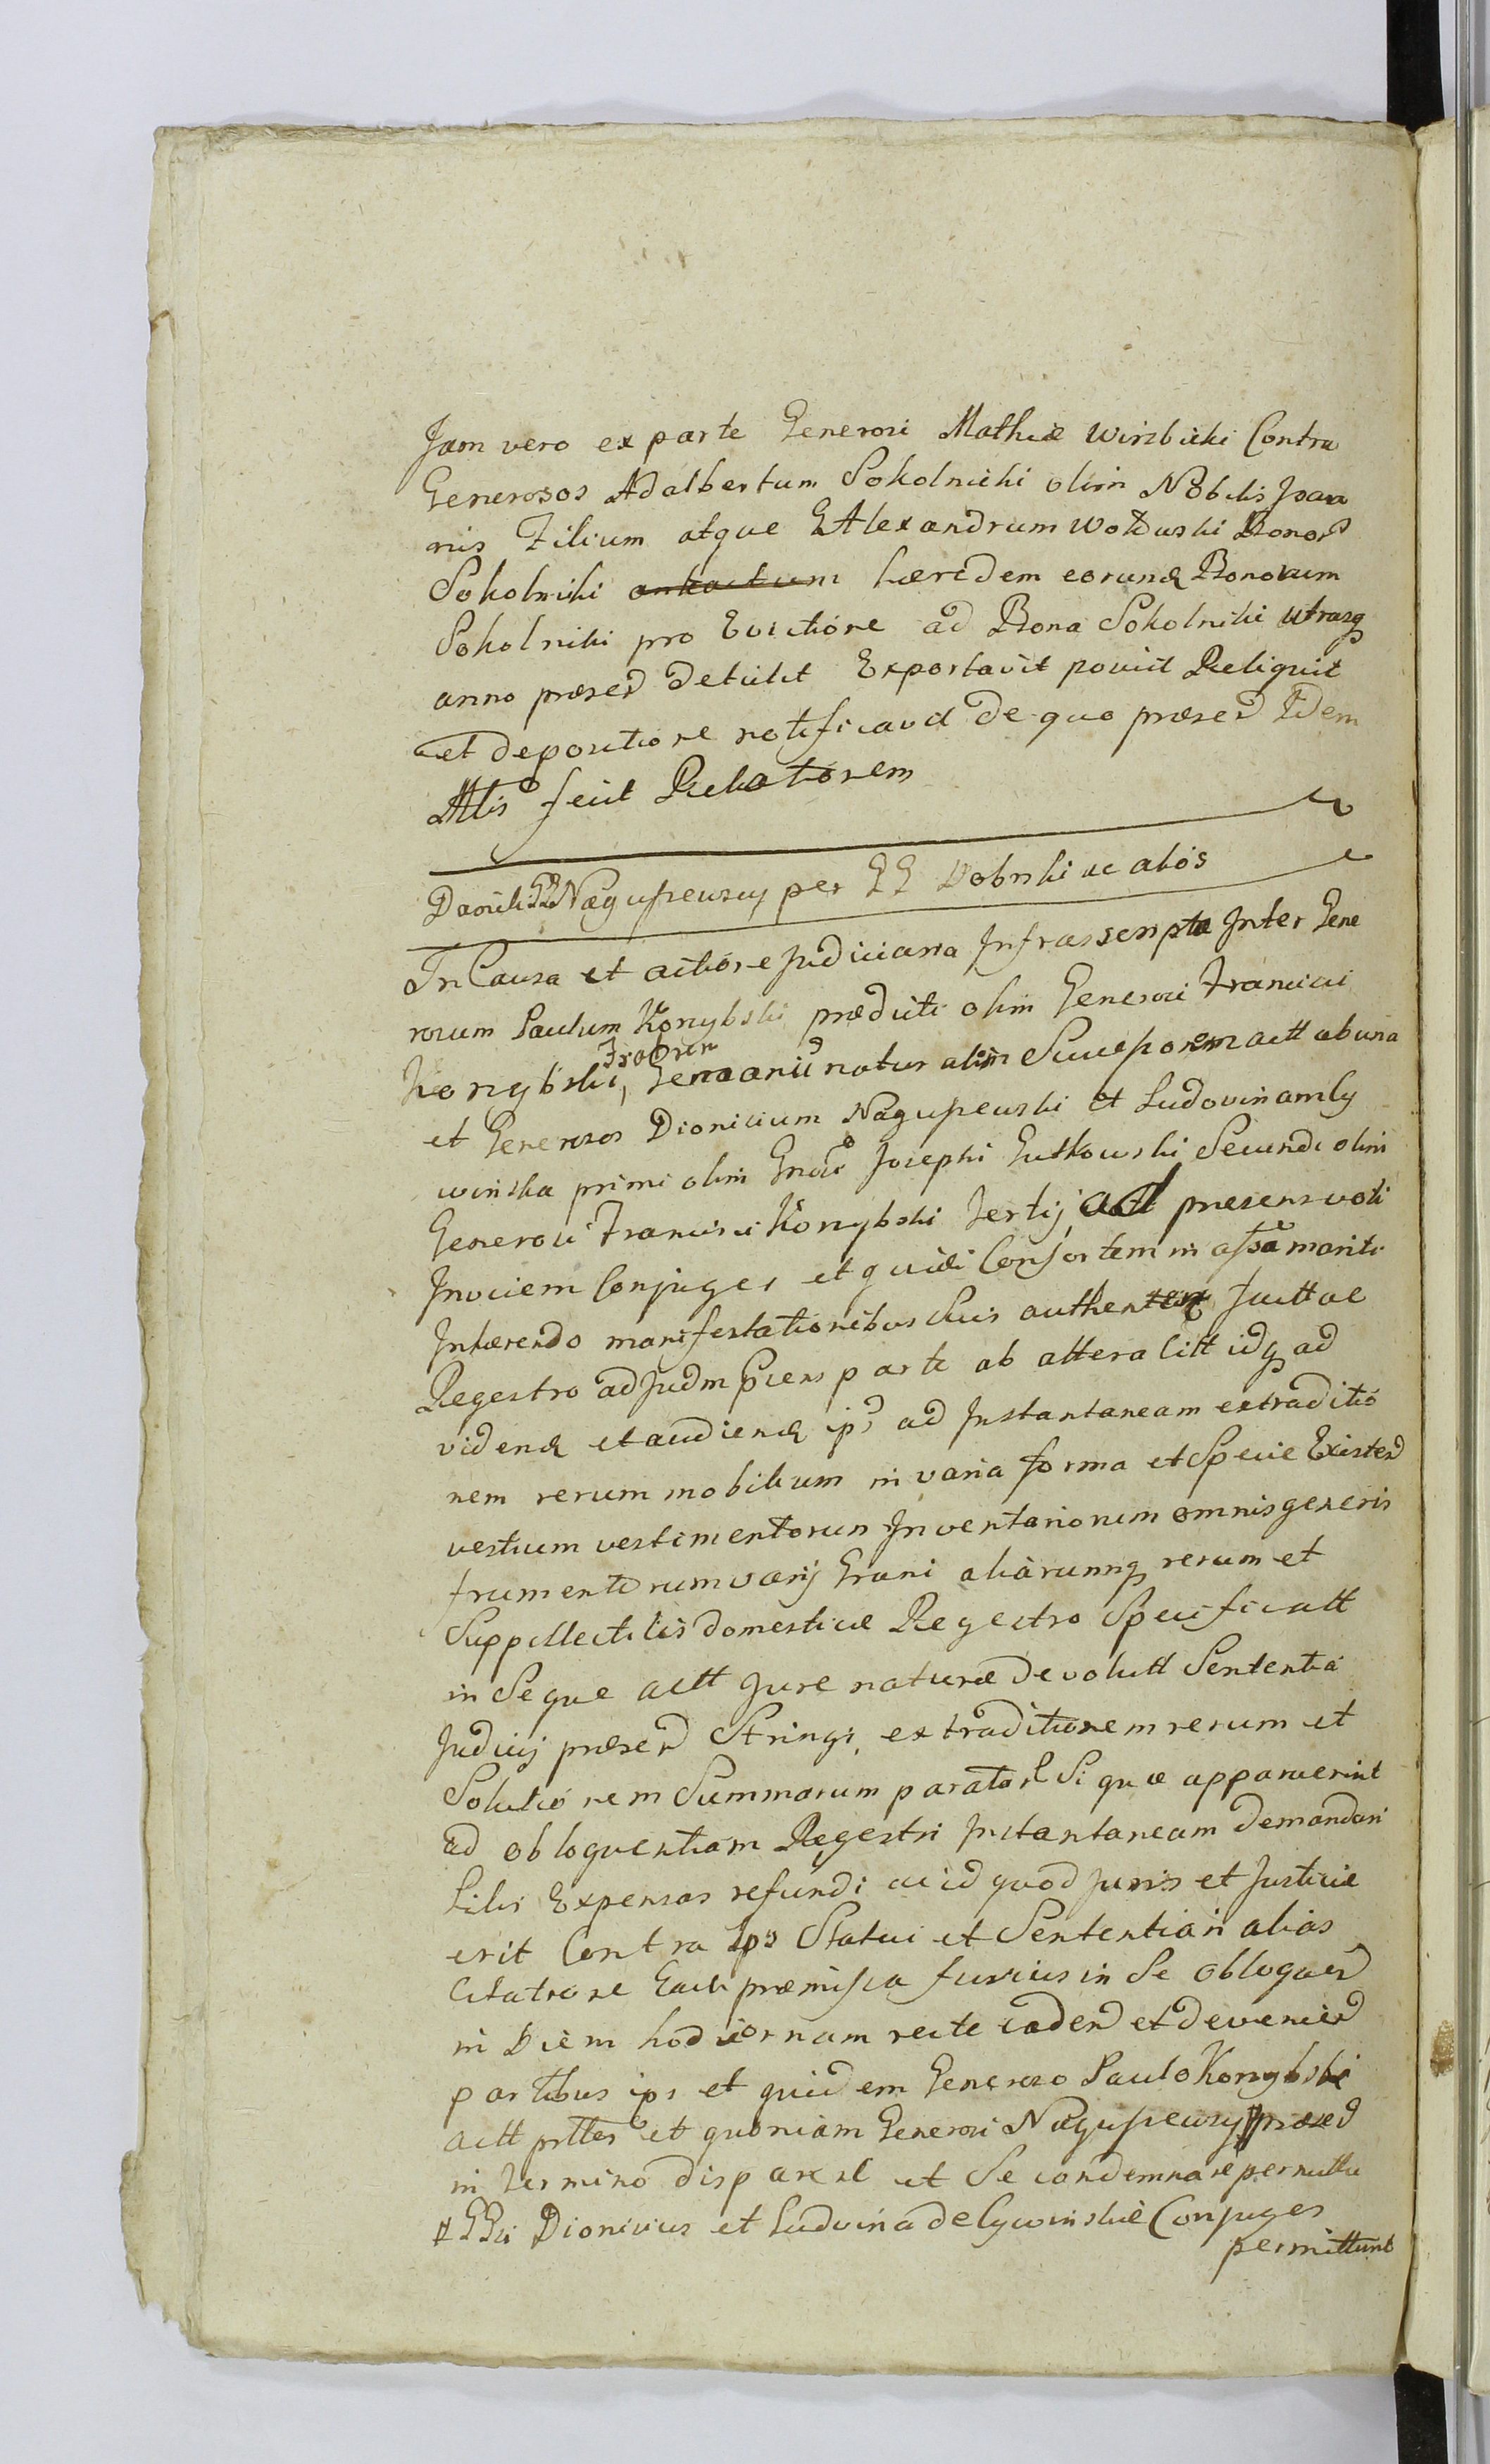 Jam vero ex parte Generosi Mathiæ Wirzbicki Contra
Generosos Adalbertum Sokolnicki olim Nobilis Joan
nis Filium atque Alexandrum Bonor
Sokolniki hæredem eorund Bonorum
Sokolniki pro Evictione ad Bona Sokolniki utrasq
anno præsed detulit Exportavit posuit Reliquit
et depositione notificavit de quo præsed Idem
Mlis fecit Relationem
GG Nagusieuscy per GG Dobrski ac alios
In Causa et actione Judiciaria Infrascripta Inter Gene
rosum Paulum Konybski præditi olim Generosi Francisci
Konybski, Fratrem Germanü natus alim Successorem actt ab una
et Generosos Dionicium Nagusieuski et Ludovinam Cy
winska primi olim Gnosi Josephi Gutkowski Secundi olim
Generosi Francisci Konybski Tertij ad presens voti
Invicem Conjuges et quidē Consortem in assa mariti
Inhærendo manifestationibus Suis authenten Juttae
Regestro ad Judm parte ab altera Citt idq ad
vidend et audiend ips ad Instantaneam extraditio
nem rerum mobilium in varia forma et Specie Existed
vestium vestimentorum Inventariorum omnis generis
frumentorum varij Grani aliarumq rerum et
Suppellectilis domesticæ Regestro Specificatt
in Se que actt Jure naturæ devolutt Sententia
Judicij præsed Stringi, extraditionem rerum et
Solutionem Summarum parator Si quæ apparuerint
ad obloquentiam Regestri Instantaneam demandari
Litis Expensas refundi ac id quod Juris et Justiciæ
erit Contra ips Statui et Sententiari alias
Citatione Eadē præmissa fusius in Se obloqued
in Diem hodiernam recte caded et devenied
partibus ips et quidem Generoso Paulo Konybski
actt et quoniam Generosi Nagusieuscy præsed
in Termino disparent et Se condemnare permittu
# GGsi Dionicius et Ludvina de Cywinskie Conjuges
permittunt